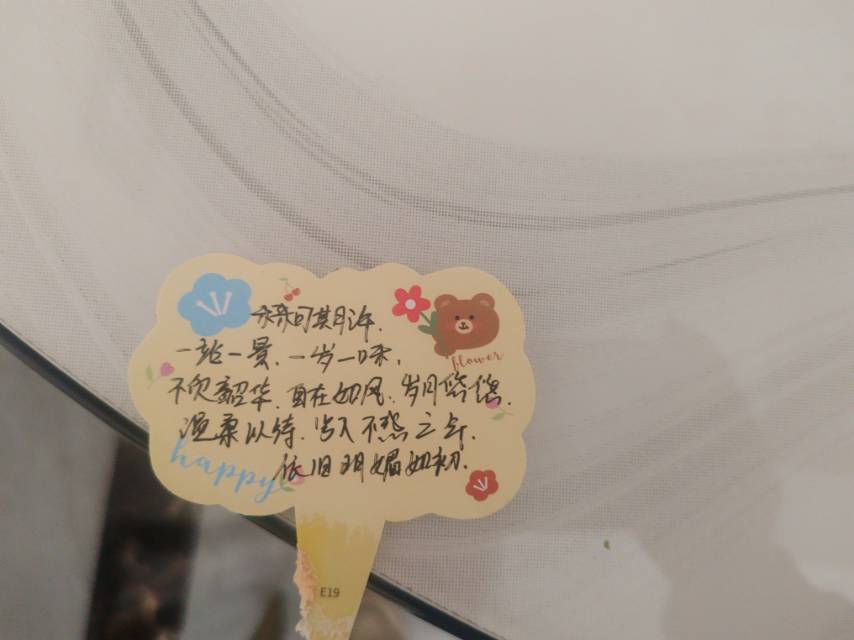 可期许.
一站一景.一岁一味,
不负韶华.自在如风.岁月悠悠.
温柔以待.入不惑之年.
依旧明媚如初.
flower
happy
E19